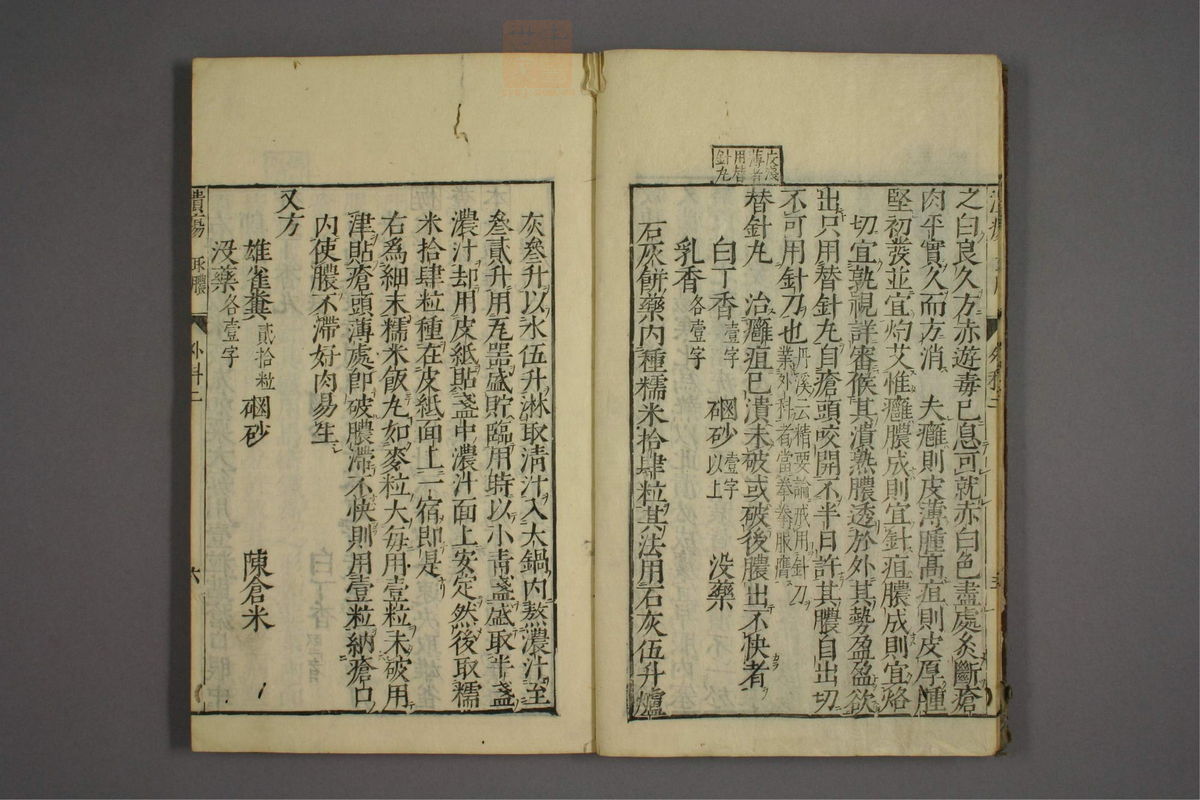 皮淺
薄者
用替
針丸
之曰良久方赤遊毒已息可就赤白色盡處灸斷瘡
肉平實久而方消　夫癰則皮薄腫高疽則皮厚腫
堅初發並宜灼艾惟癰膿成則宜針疽膿成則宜烙
切宜熟視詳審候其潰熟膿透於外其勢盈盈欲
出只用替針丸自瘡頭咬開不半日許其膿自出切
不可用針刀也丹溪云精要論戒用針刀業外科者當拳拳服膺
替針丸　治癰疽已潰未破或破後膿出不快者
白丁香壹字　硇砂壹字以上　没藥
乳香各壹字
石灰餅藥内種糯米拾肆粒其法用石灰伍升爐
灰叁升以水伍升淋取淸汁入大鍋内熬濃汁至
叁貳升用瓦器盛貯臨用時以小靑盞盛取半盞
濃汁却用皮紙貼盞中濃汁面上安定然後取糯
米拾肆粒種在皮紙面上一宿即是
右爲細末糯米飯丸如麥粒大每用壹粒未破用
津貼瘡頭薄處即破膿滯不快則用壹粒納瘡口
内使膿不滯好肉易生
又方
雄雀糞貳拾粒　硇砂　陳倉米
没藥各壹字
潰瘍　外科二　六